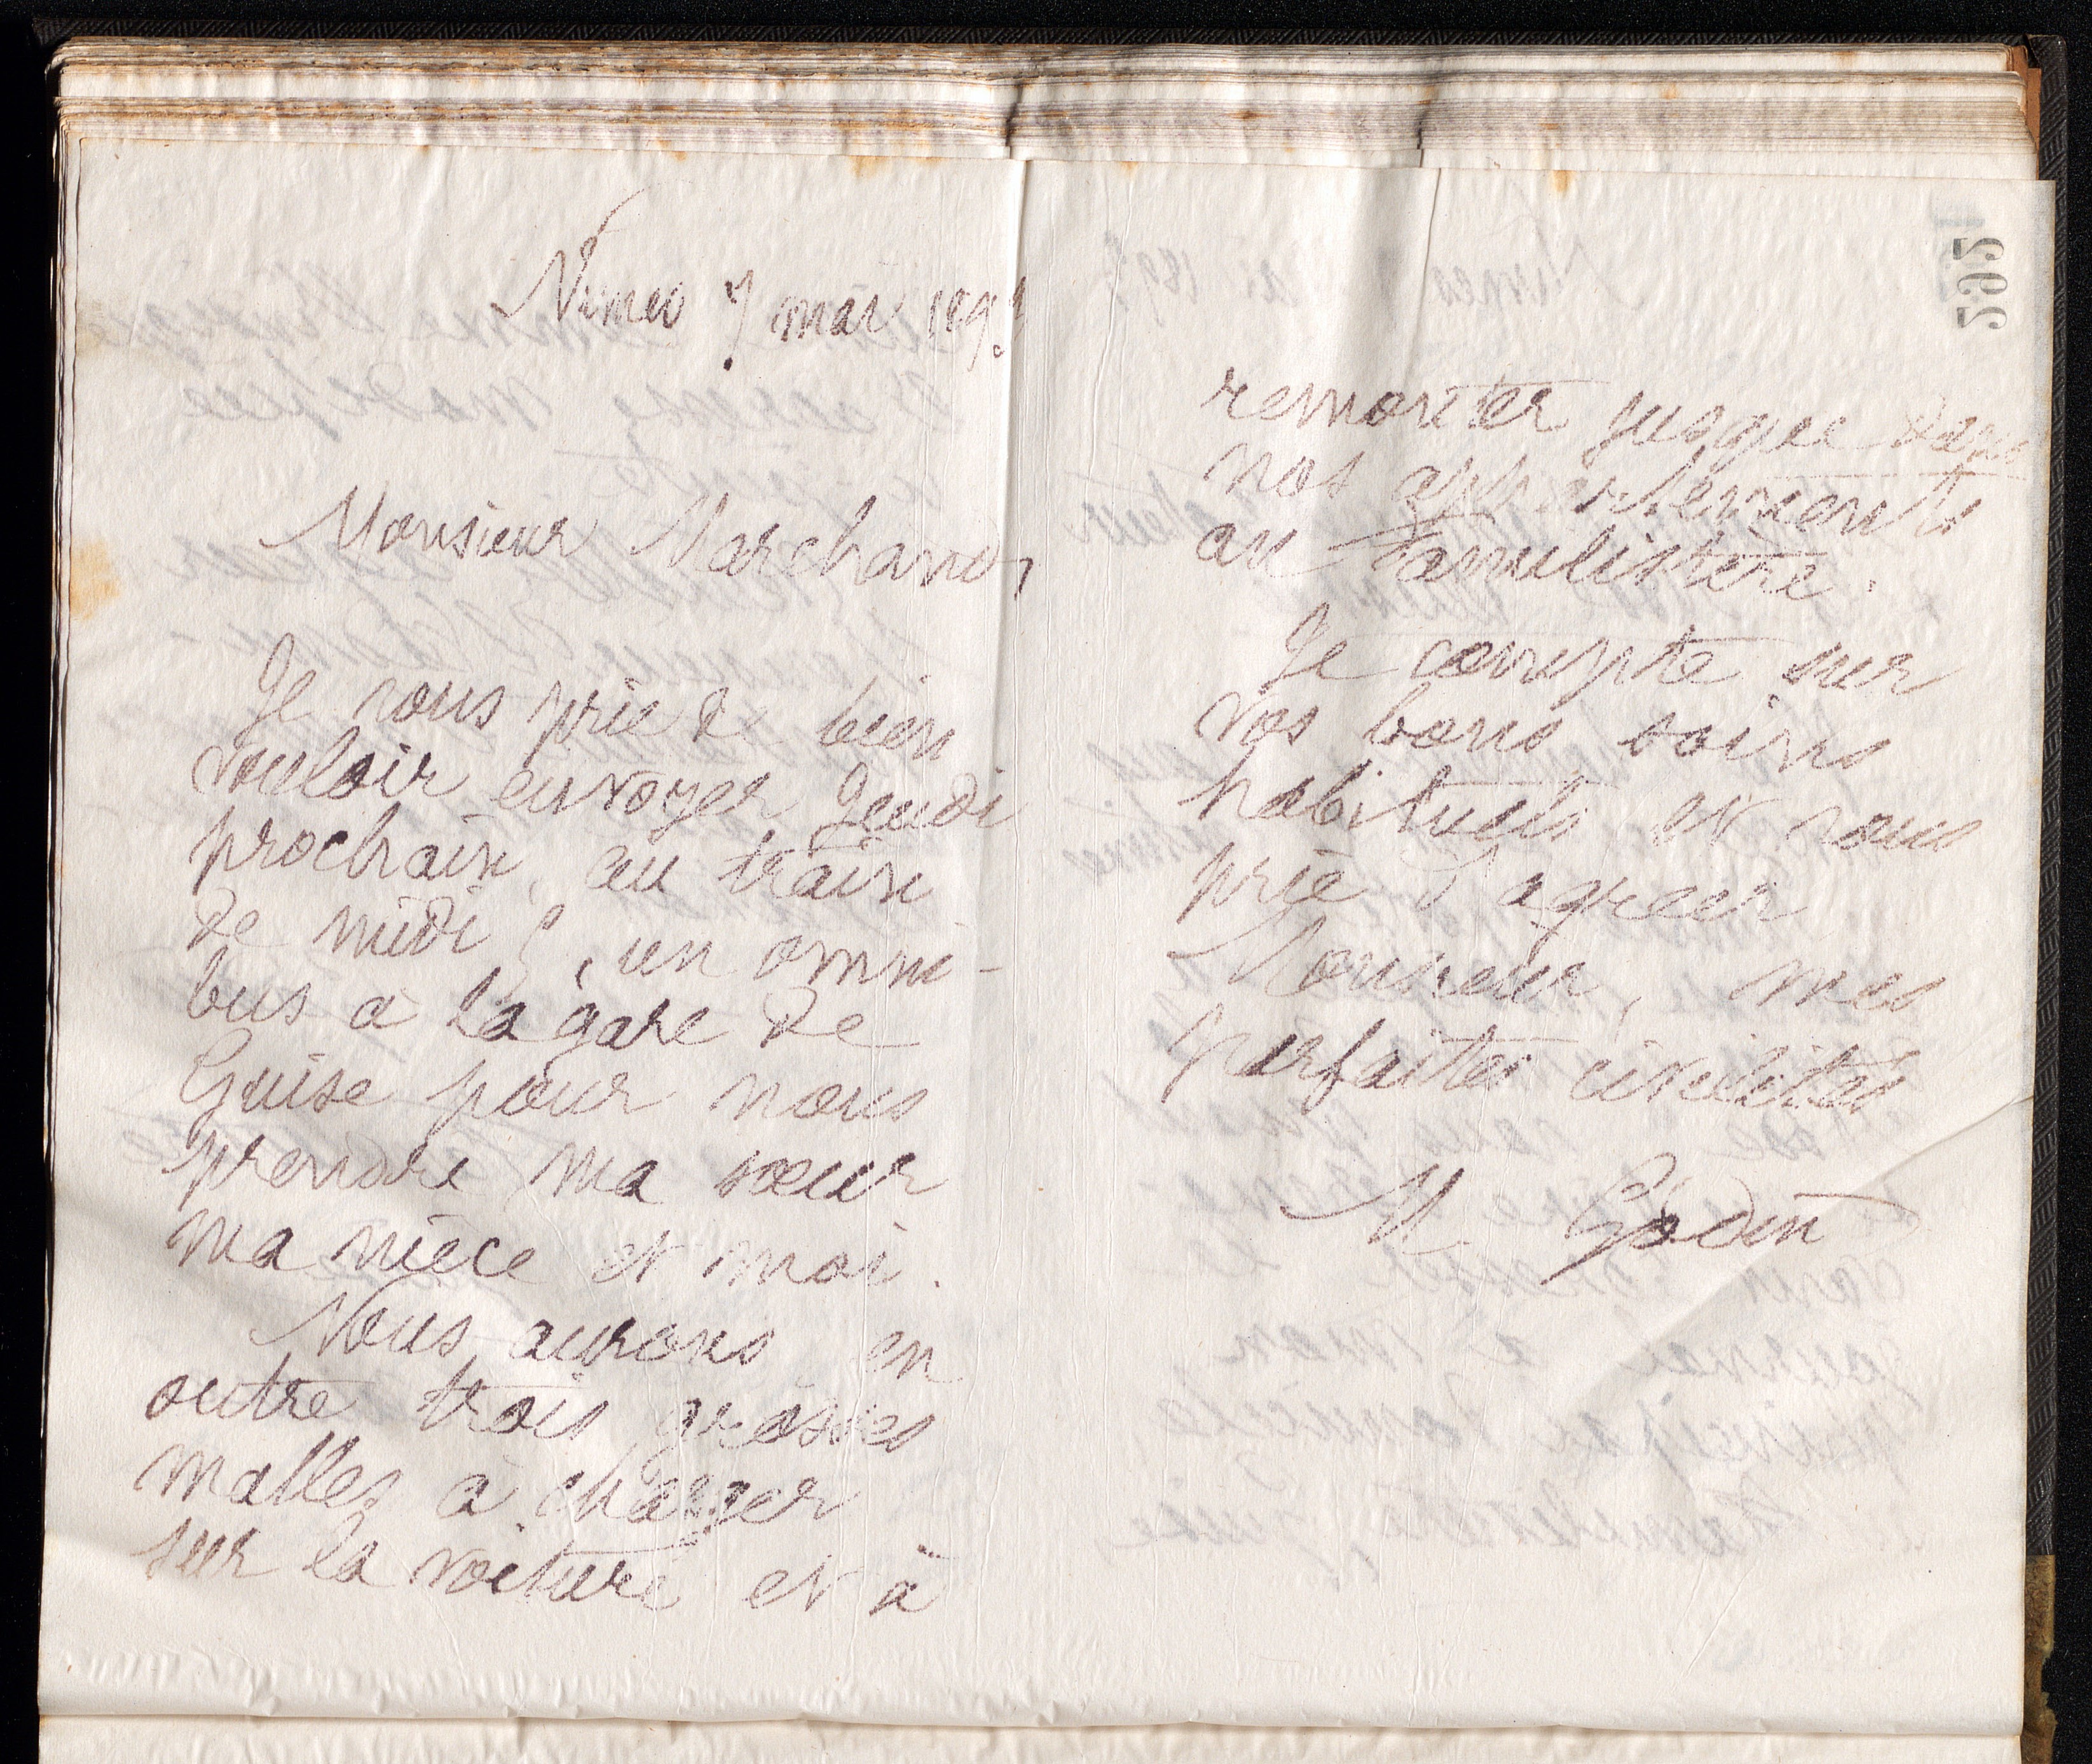 Nimes 7 mai 189
Monsieur Marchand,
Je vous prie de bien
vouloir envoyer Jeudi
prochain, au train
de midi, un omni-
bus à la gare de
Guise pour nous
prendre ma sœur
ma nièce et moi.
Nous aurons en
outre trois grosses
malles à charger
sur la voiture et à
remonter jusque dans
nos appartements
au Familistère.
Je compte sur
vos bons soins
habituels et vous
prie d'agréer
Monsieur, mes
parfaites civilités
M Godin